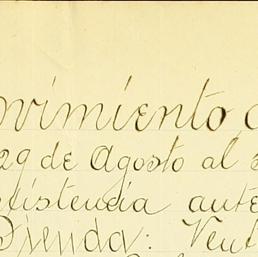 ovimiento
29 de Agosto al
existencia ante
Tienda: Vent